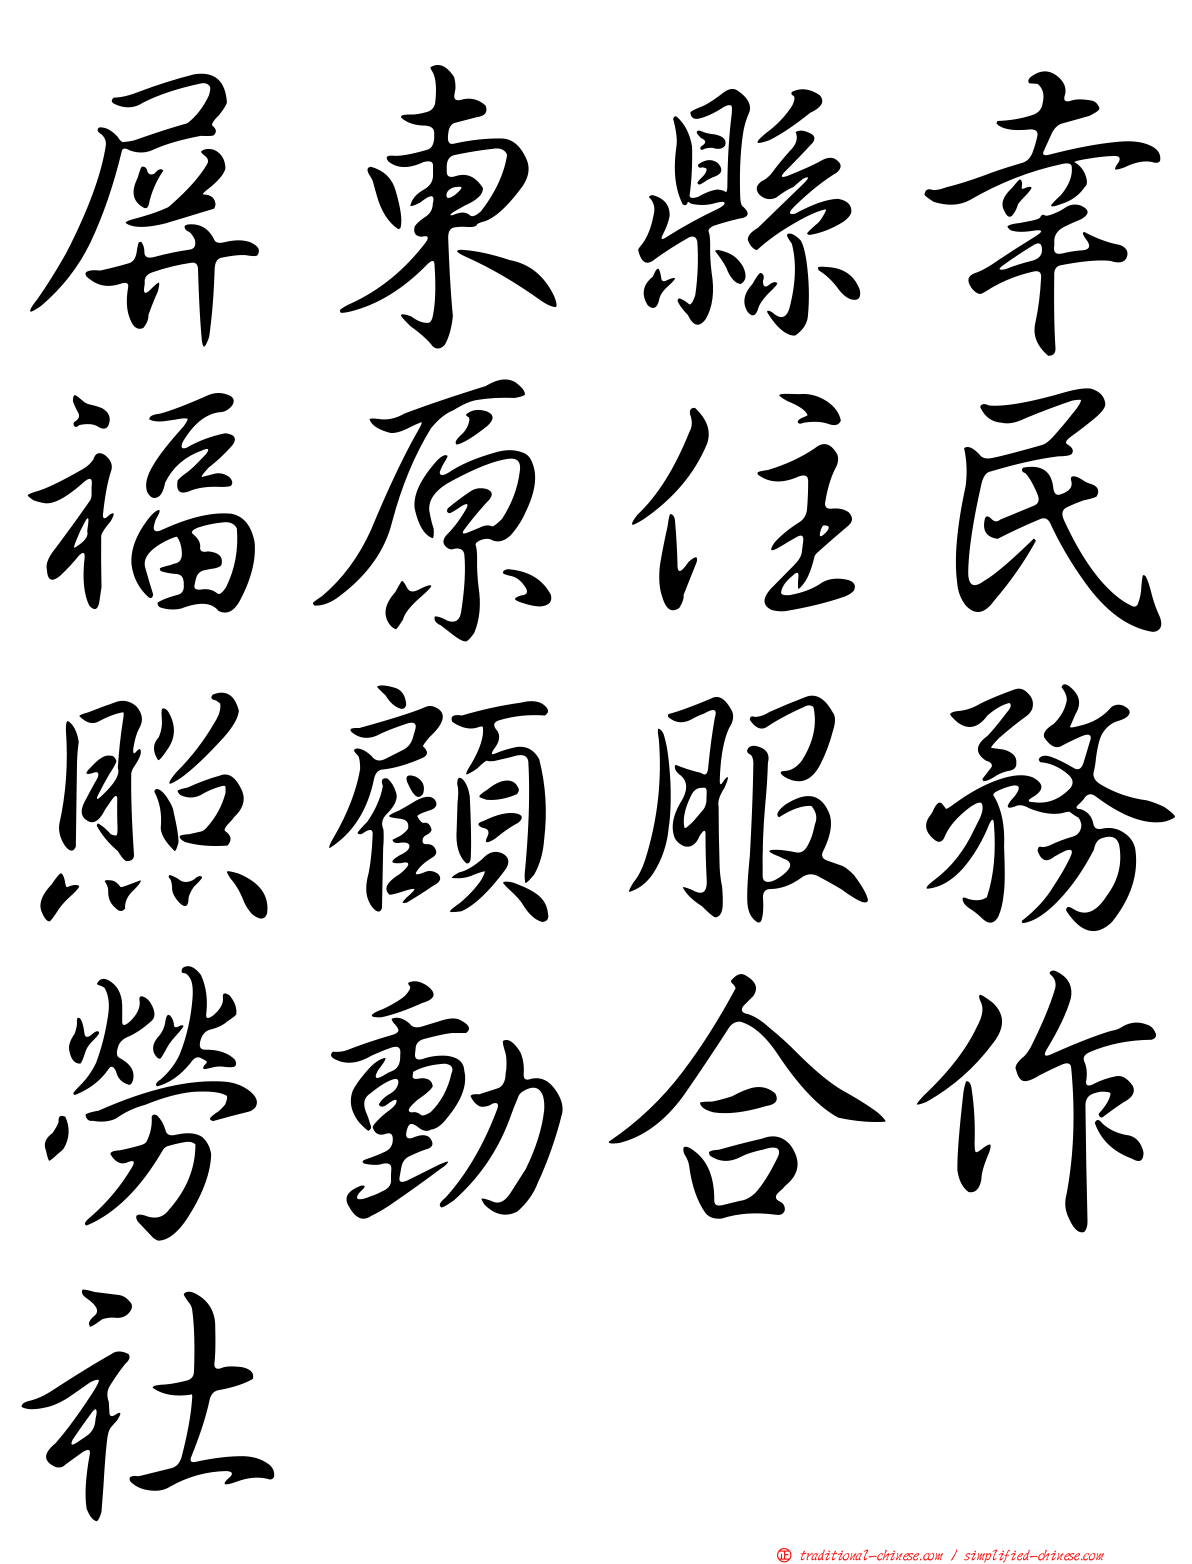 屏東縣幸
福原住民
照顧服務
勞動合作
社
正 traditional-chinese.com / simplified-chinese.com